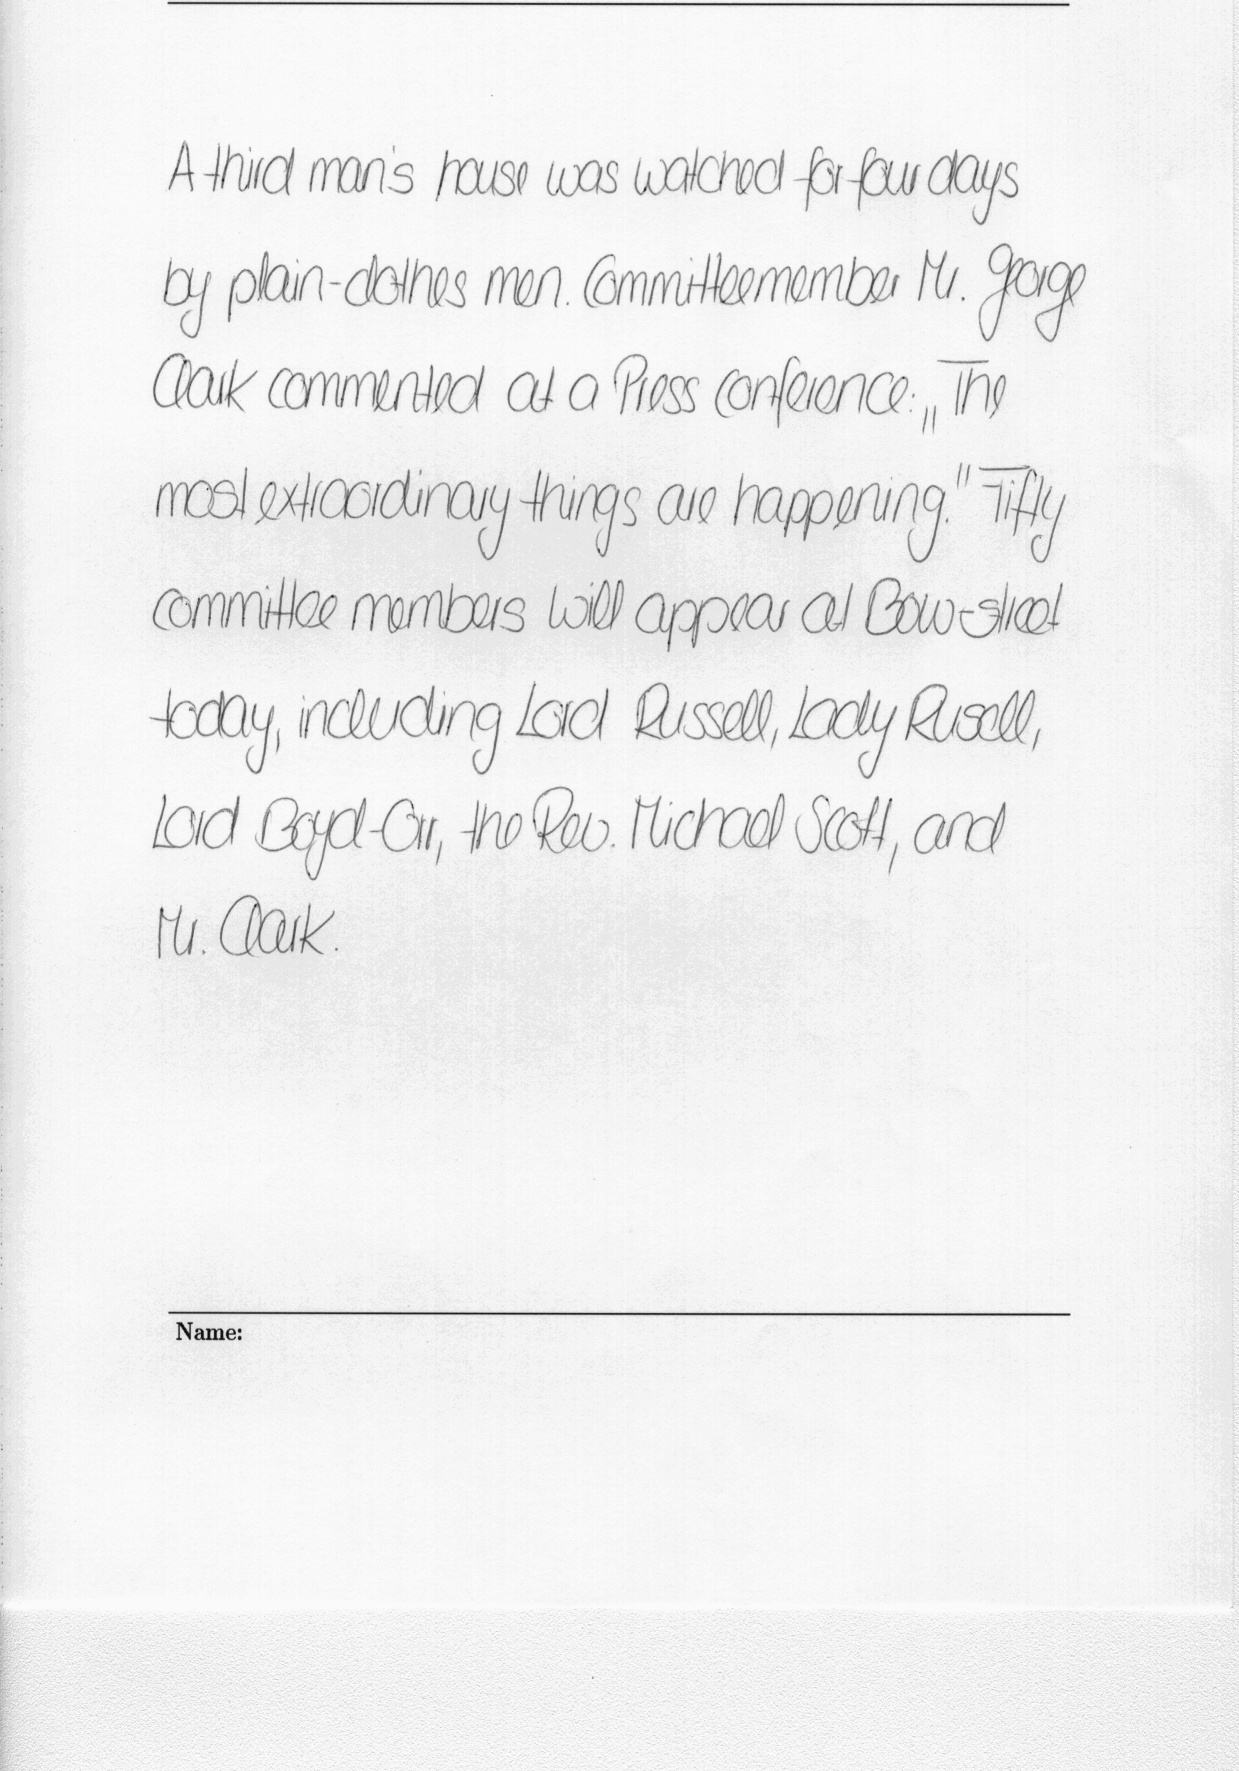 A third man's house was watched for four days
by plain-clothes men. Committee member Mr. George
Clark commented at a Press conference: „The
most extraordinary things are happening." Fifty
committee members will appear at Bow-street
today, including Lord Russell, Lady Rusell,
Lord Boyd-Orr, the Rev. Michael Scott, and
Mr. Clark.
Name: